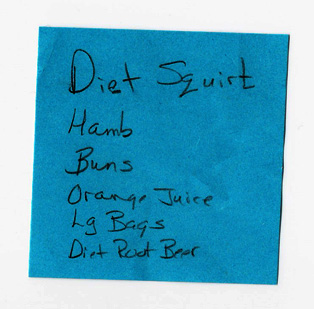 Diet Squirt
Hamb
Buns
Orange Juice
Lg Bags
Diet Root Beer